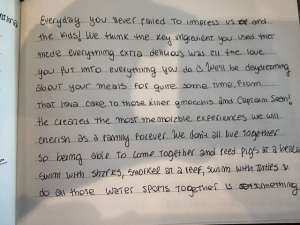 Everyday you never failed to impress us and
the kids! We think the key ingredient you used that
made everything extra delicious was all the love
you put into everything you do. We'll be daydreaming
about your meals for quite some time. From
that lava cake, to those killer gnocchis and Captain Sean!
He created the most memorable experiences we will
cherish as a family forever. We don't all live together
so being able to come together and feed pigs at a beach,
swim with sharks, snorkel at a reef, swim with turtles &
do all those water sports together is something